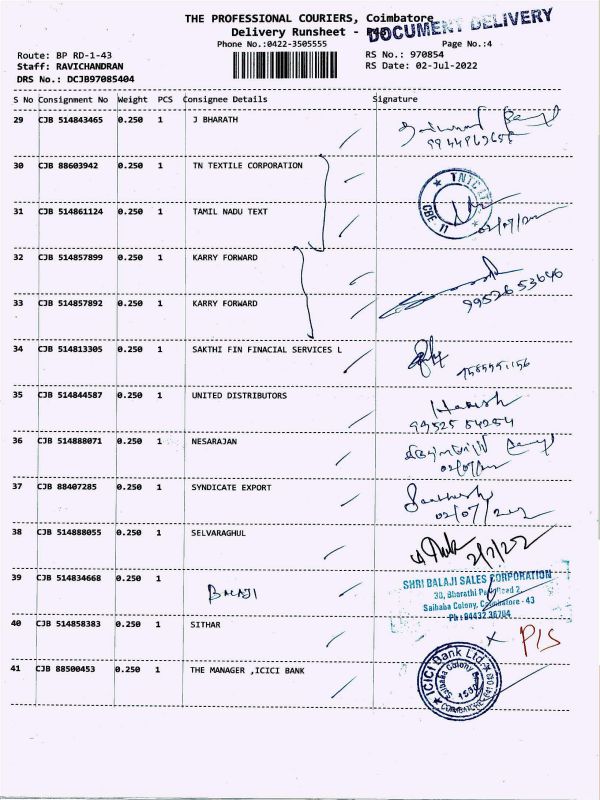 THE PROFESSIONAL COURIERS, Coimbatore
DOCUMENT DELIVERY
Delivery Runsheet -
Phone No.:0422-3505555
Page No.:4
Route: BP RD-1-43
RS No.: 970854
Staff: RAVICHANDRAN
RS Date: 02-Jul-2022
DRS No.: DCJB97085404
S No Consignment No Weight PCS Consignee Details Signature
29 CJB 514843465 0.250 1 J BHARATH
30 CJB 88603942 0.250 1 TN TEXTILE CORPORATION
TNTC LTD
CBE 11
31 CJB 514861124 0.250 1 TAMIL NADU TEXT
02/07/2022
32 CJB 514857899 0.250 1 KARRY FORWARD
9952653646
33 CJB 514857892 0.250 1 KARRY FORWARD
34 CJB 514813305 0.250 1 SAKTHI FIN FINACIAL SERVICES L
35 CJB 514844587 0.250 1 UNITED DISTRIBUTORS
Harish
99525 84254
36 CJB 514888071 0.250 1 NESARAJAN
37 CJB 88407285 0.250 1 SYNDICATE EXPORT
38 CJB 514888055 0.250 1 SELVARAGHUL
2/7/22
39 CJB 514834668 0.250 1 BALAJI
SHRI BALAJI SALES CORPORATION
30, Bharathi Park Road 2,
Saibaba Colony, Coimbatore - 43
Ph : 84432 36704
40 CJB 514858383 0.250 1 SITHAR
X P/S
41 CJB 88500453 0.250 1 THE MANAGER ,ICICI BANK
ICICI Bank Ltd
Saibaba Colony
1590
COIMBATORE